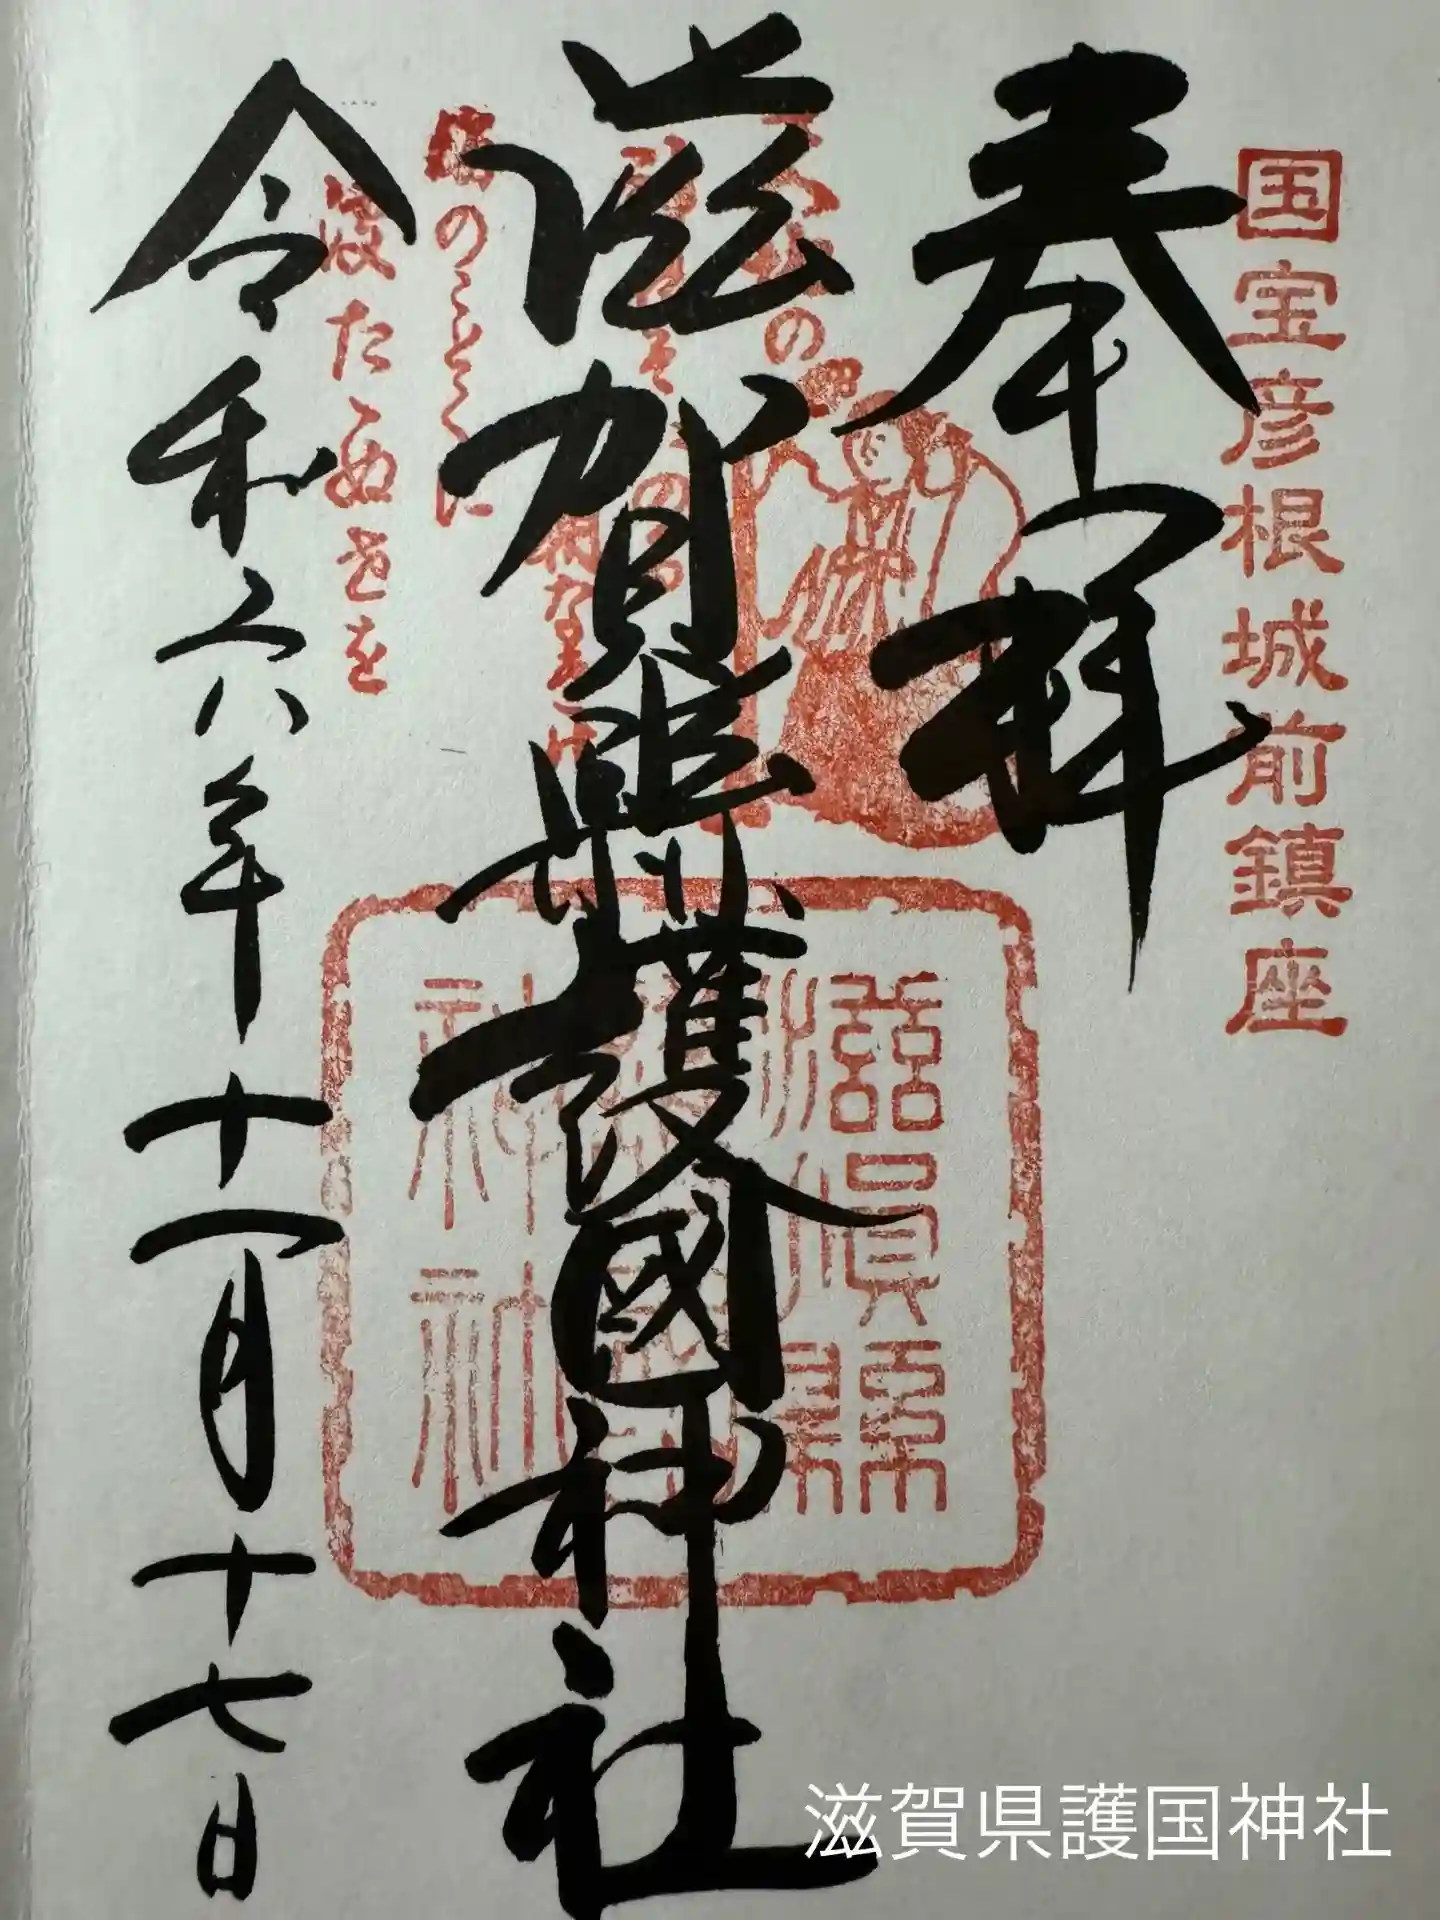 国宝彦根城前鎮座
奉拝
滋賀縣護國神社
令和六年十一月十七日
滋賀縣
神社
のことくに
渡たぬきを
滋賀県護国神社